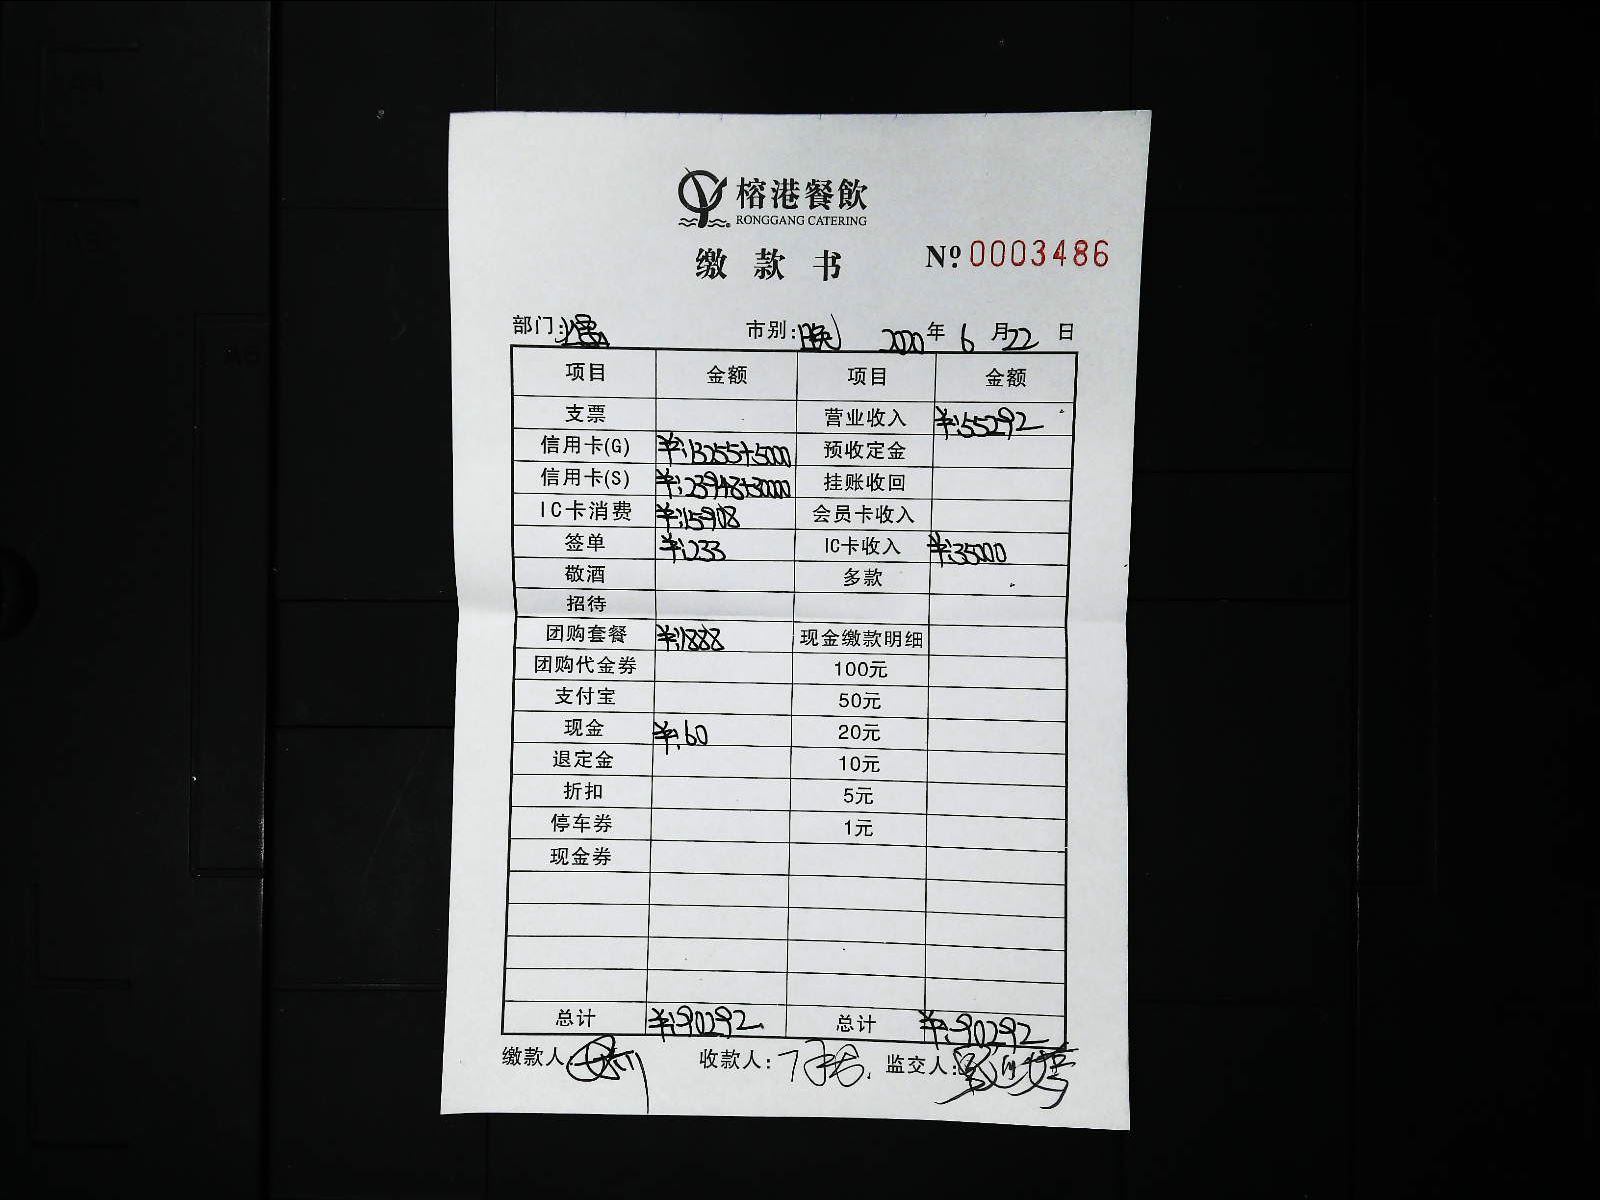 榕港餐飲
RONGGANG CATERING
缴款书
Nº 0003486
部门: 市别:晚 2020年6月22日
项目 金额 项目 金额
支票 营业收入 ¥:55292
信用卡(G) ¥:13255+5000 预收定金
信用卡(S) ¥:23948+30000 挂账收回
IC卡消费 ¥:15908 会员卡收入
签单 ¥:233 IC卡收入 ¥:35000
敬酒 多款
招待
团购套餐 ¥:1888 现金缴款明细
团购代金券 100元
支付宝 50元
现金 ¥:60 20元
退定金 10元
折扣 5元
停车券 1元
现金券
总计 ¥:90292 总计 ¥:90292
缴款人: 收款人: 监交人: